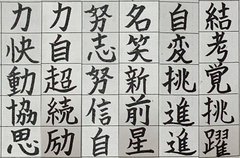 力力努名自結
快自志笑変考
動超努新挑覚
協続信前進挑
思励自星進躍